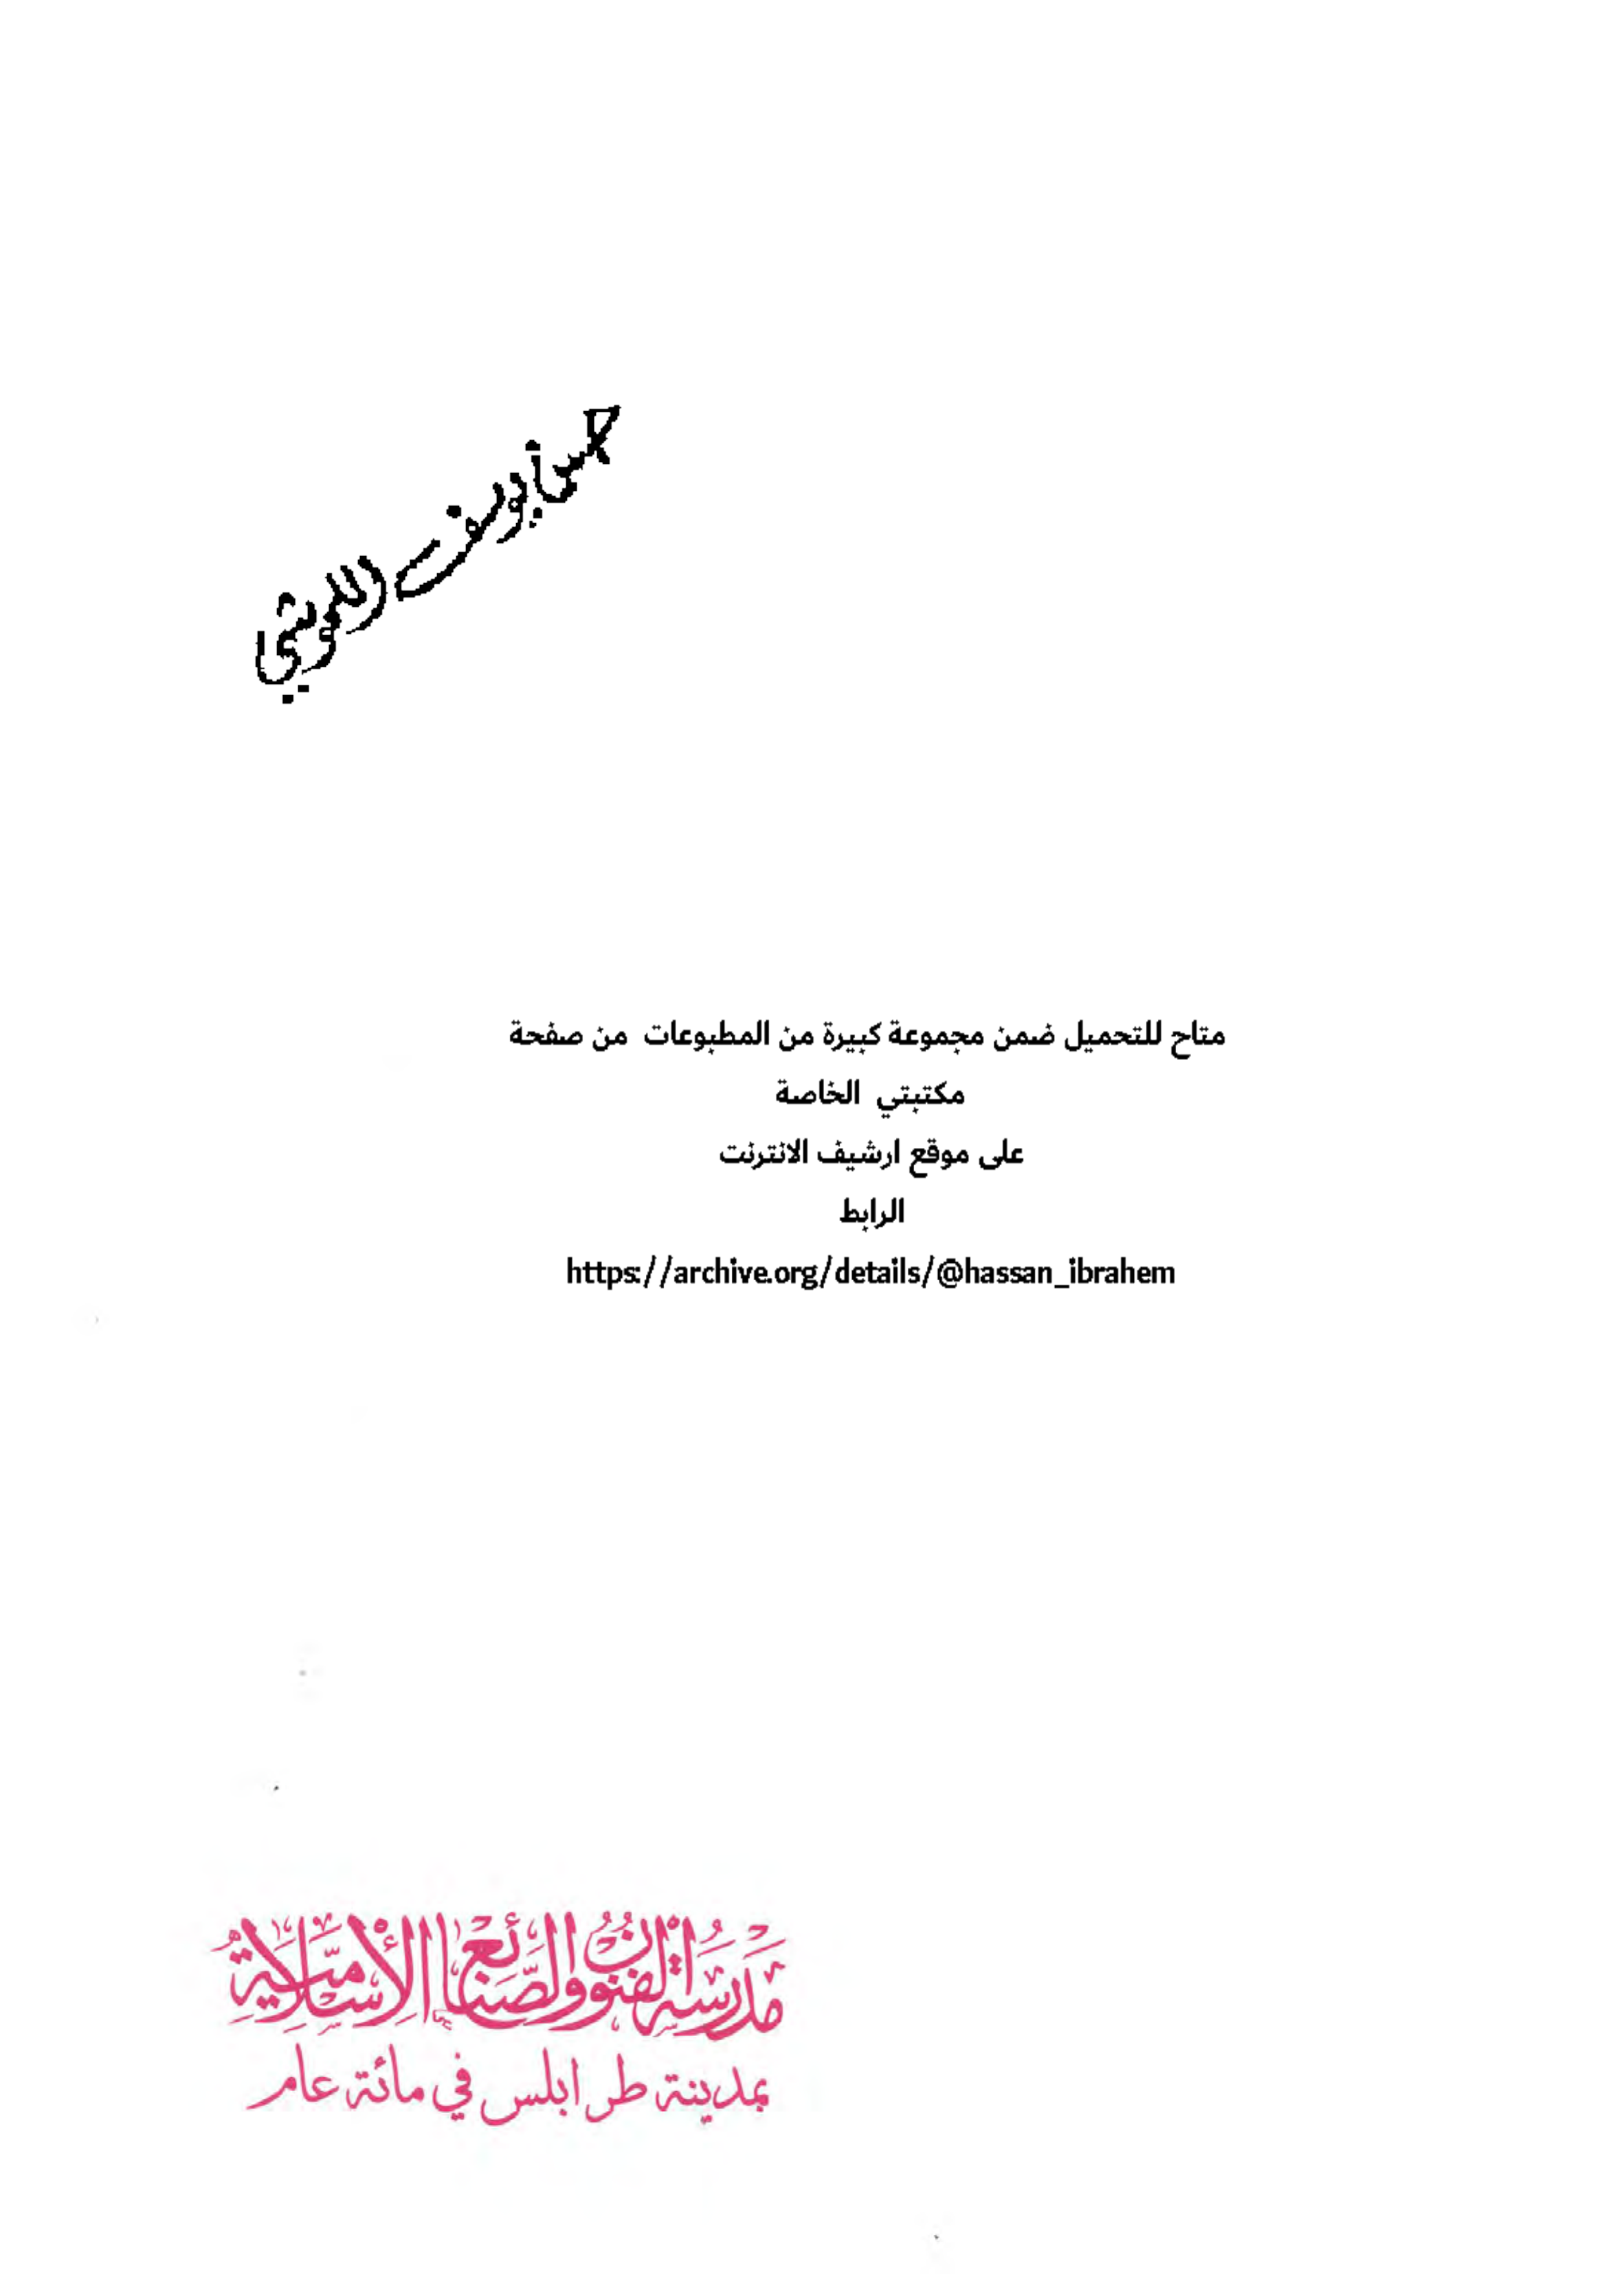 حسن يوسف
متاح للتحميل ضمن مجموعة كبيرة من المطبوعات من صفحة
مكتبتي الخاصة
على موقع ارشيف الانترنت
الرابط
https://archive.org/details/@hassan_ibrahem
مَدرَسَة الفنُون والصَّنائع الإسلاميَّة
بمدينة طرابلس في مائة عام